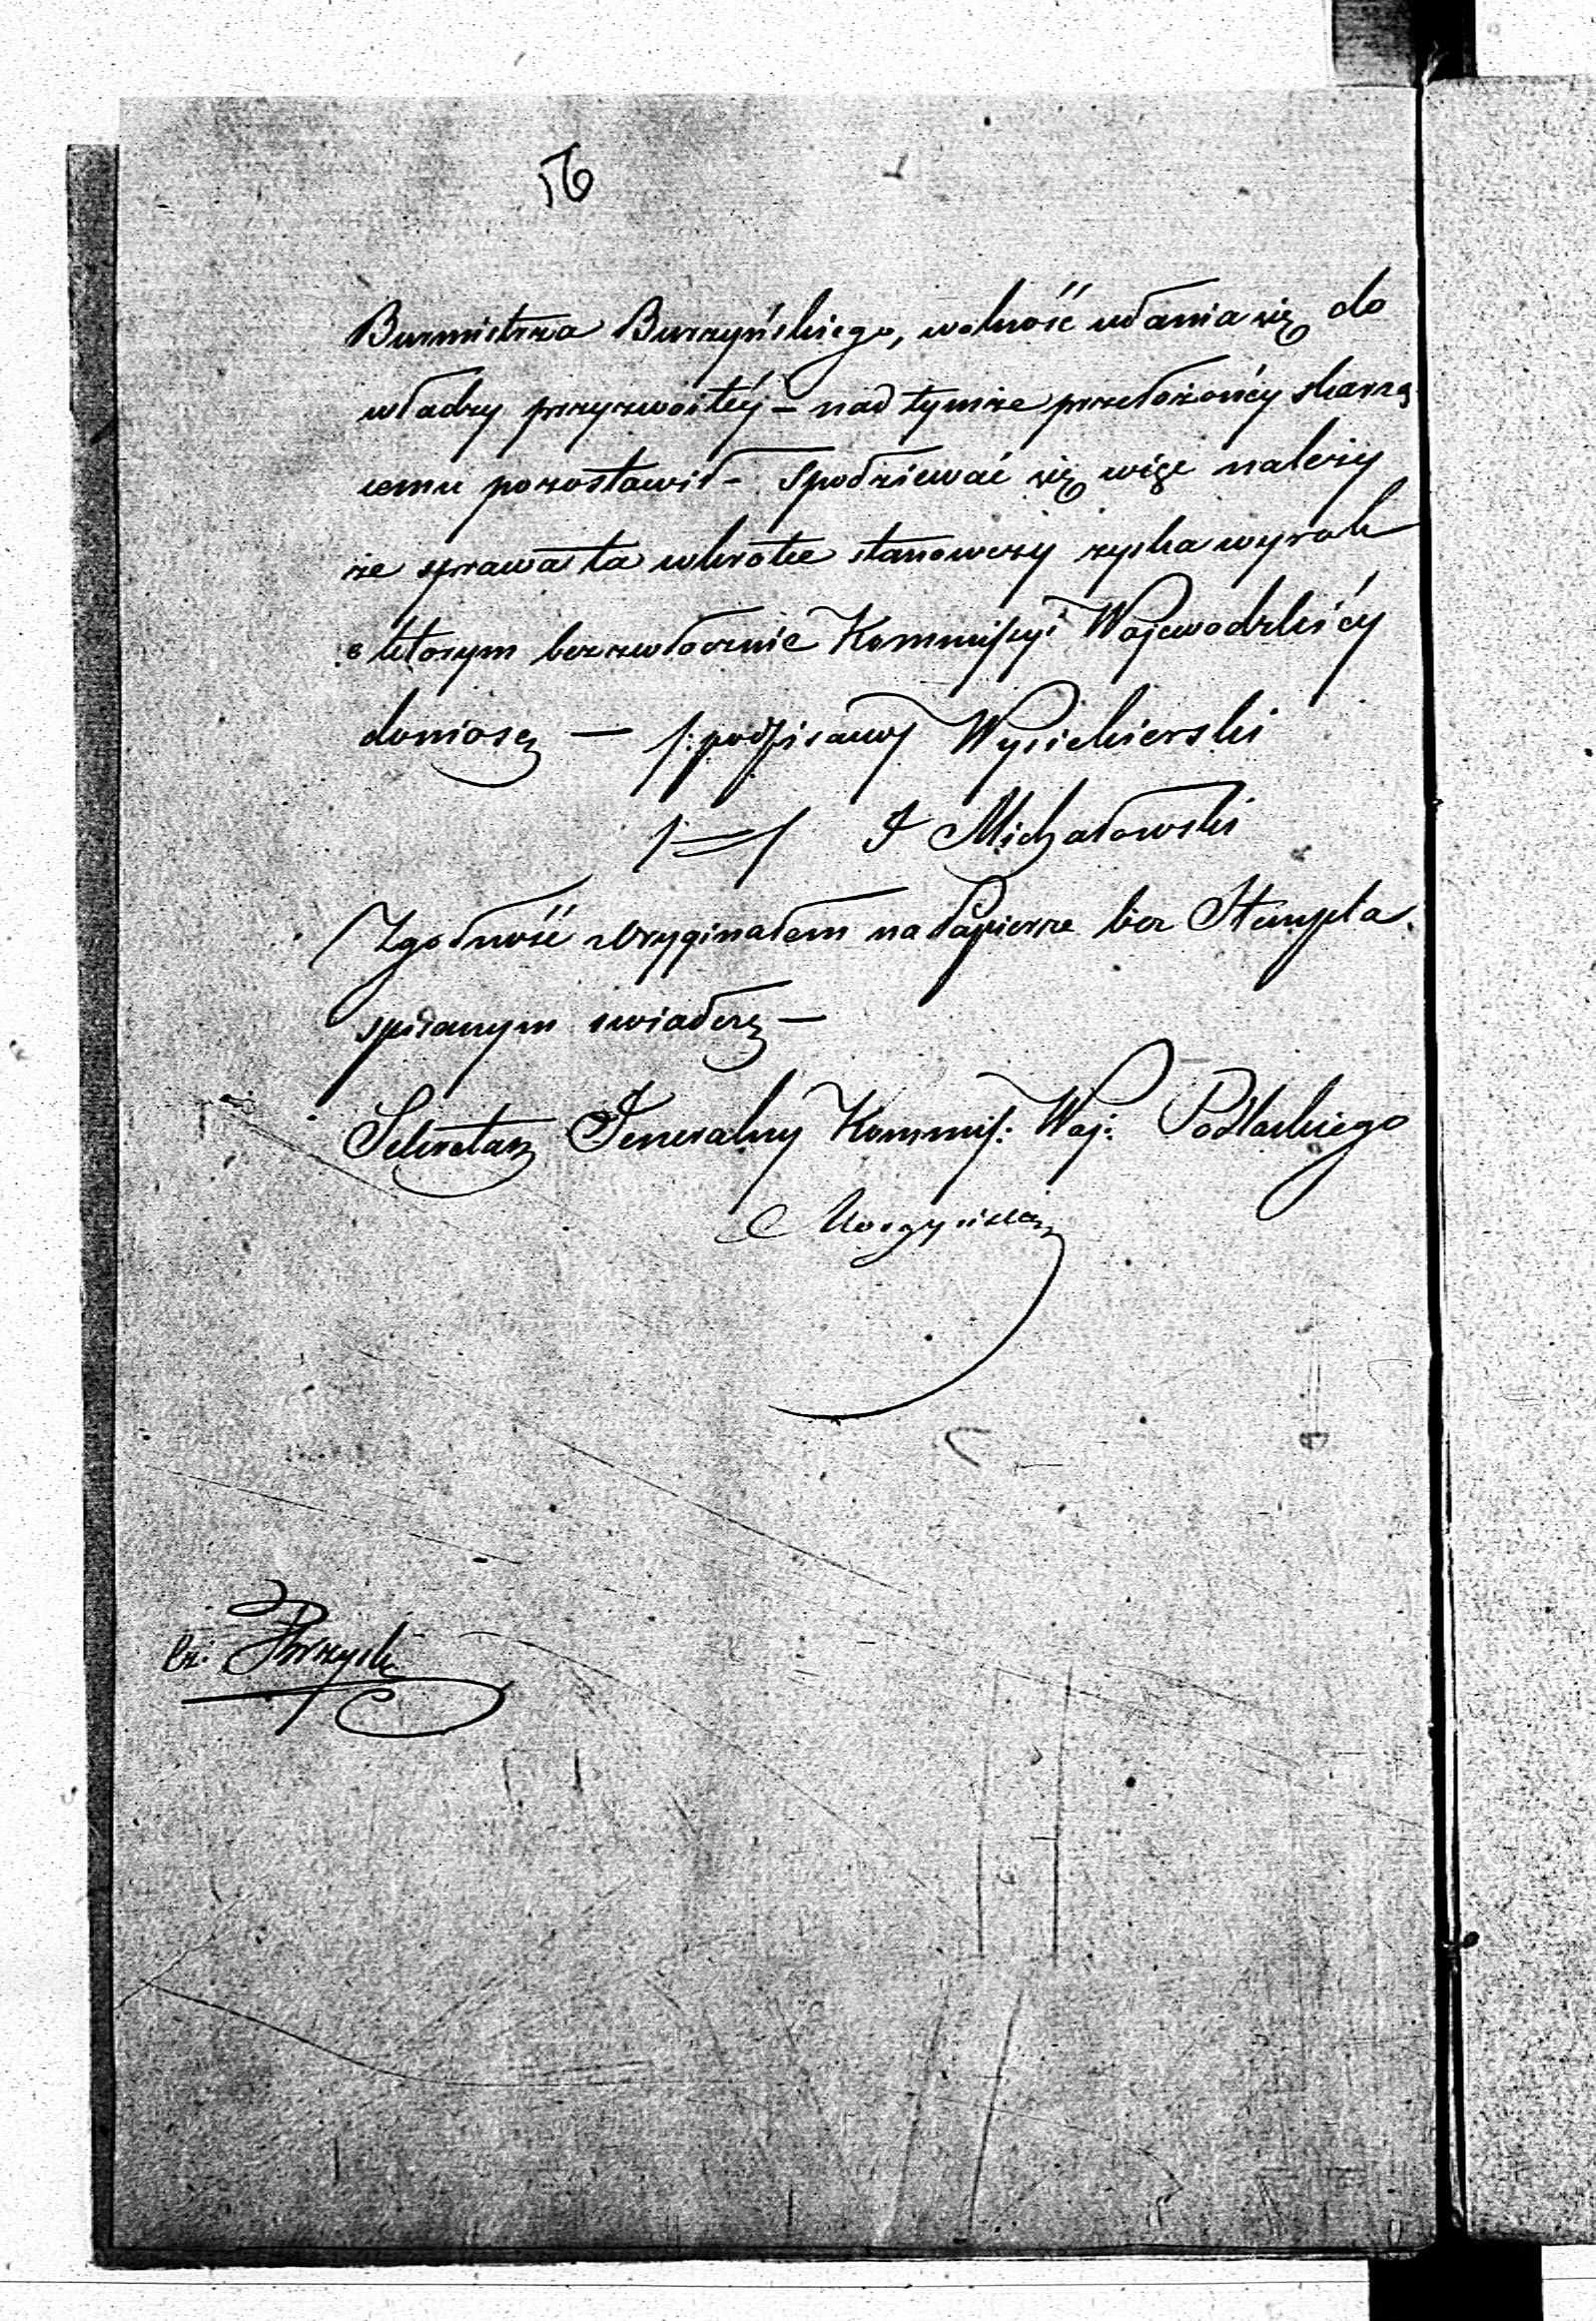 56
Burmistrza Burzyńskiego, wolność udania się do
władzy przyzwoitéy – nad tymże przełożonéy skarżą
cemu pozostawił – Spodziewać się więc należy
że sprawa ta wkrótce stanowczy zyska wyrok
o którym bezzwłocznie Kommissyi Wojewodzkiéy
doniosę — /: podpisany/ Wyziekierski
/=/ J Michałowski
Zgodność z Oryginałem na Papierze bez Stempla
spisanym świadczę —
Sekretarz Jeneralny Kommis: Woj: Podlaskiego